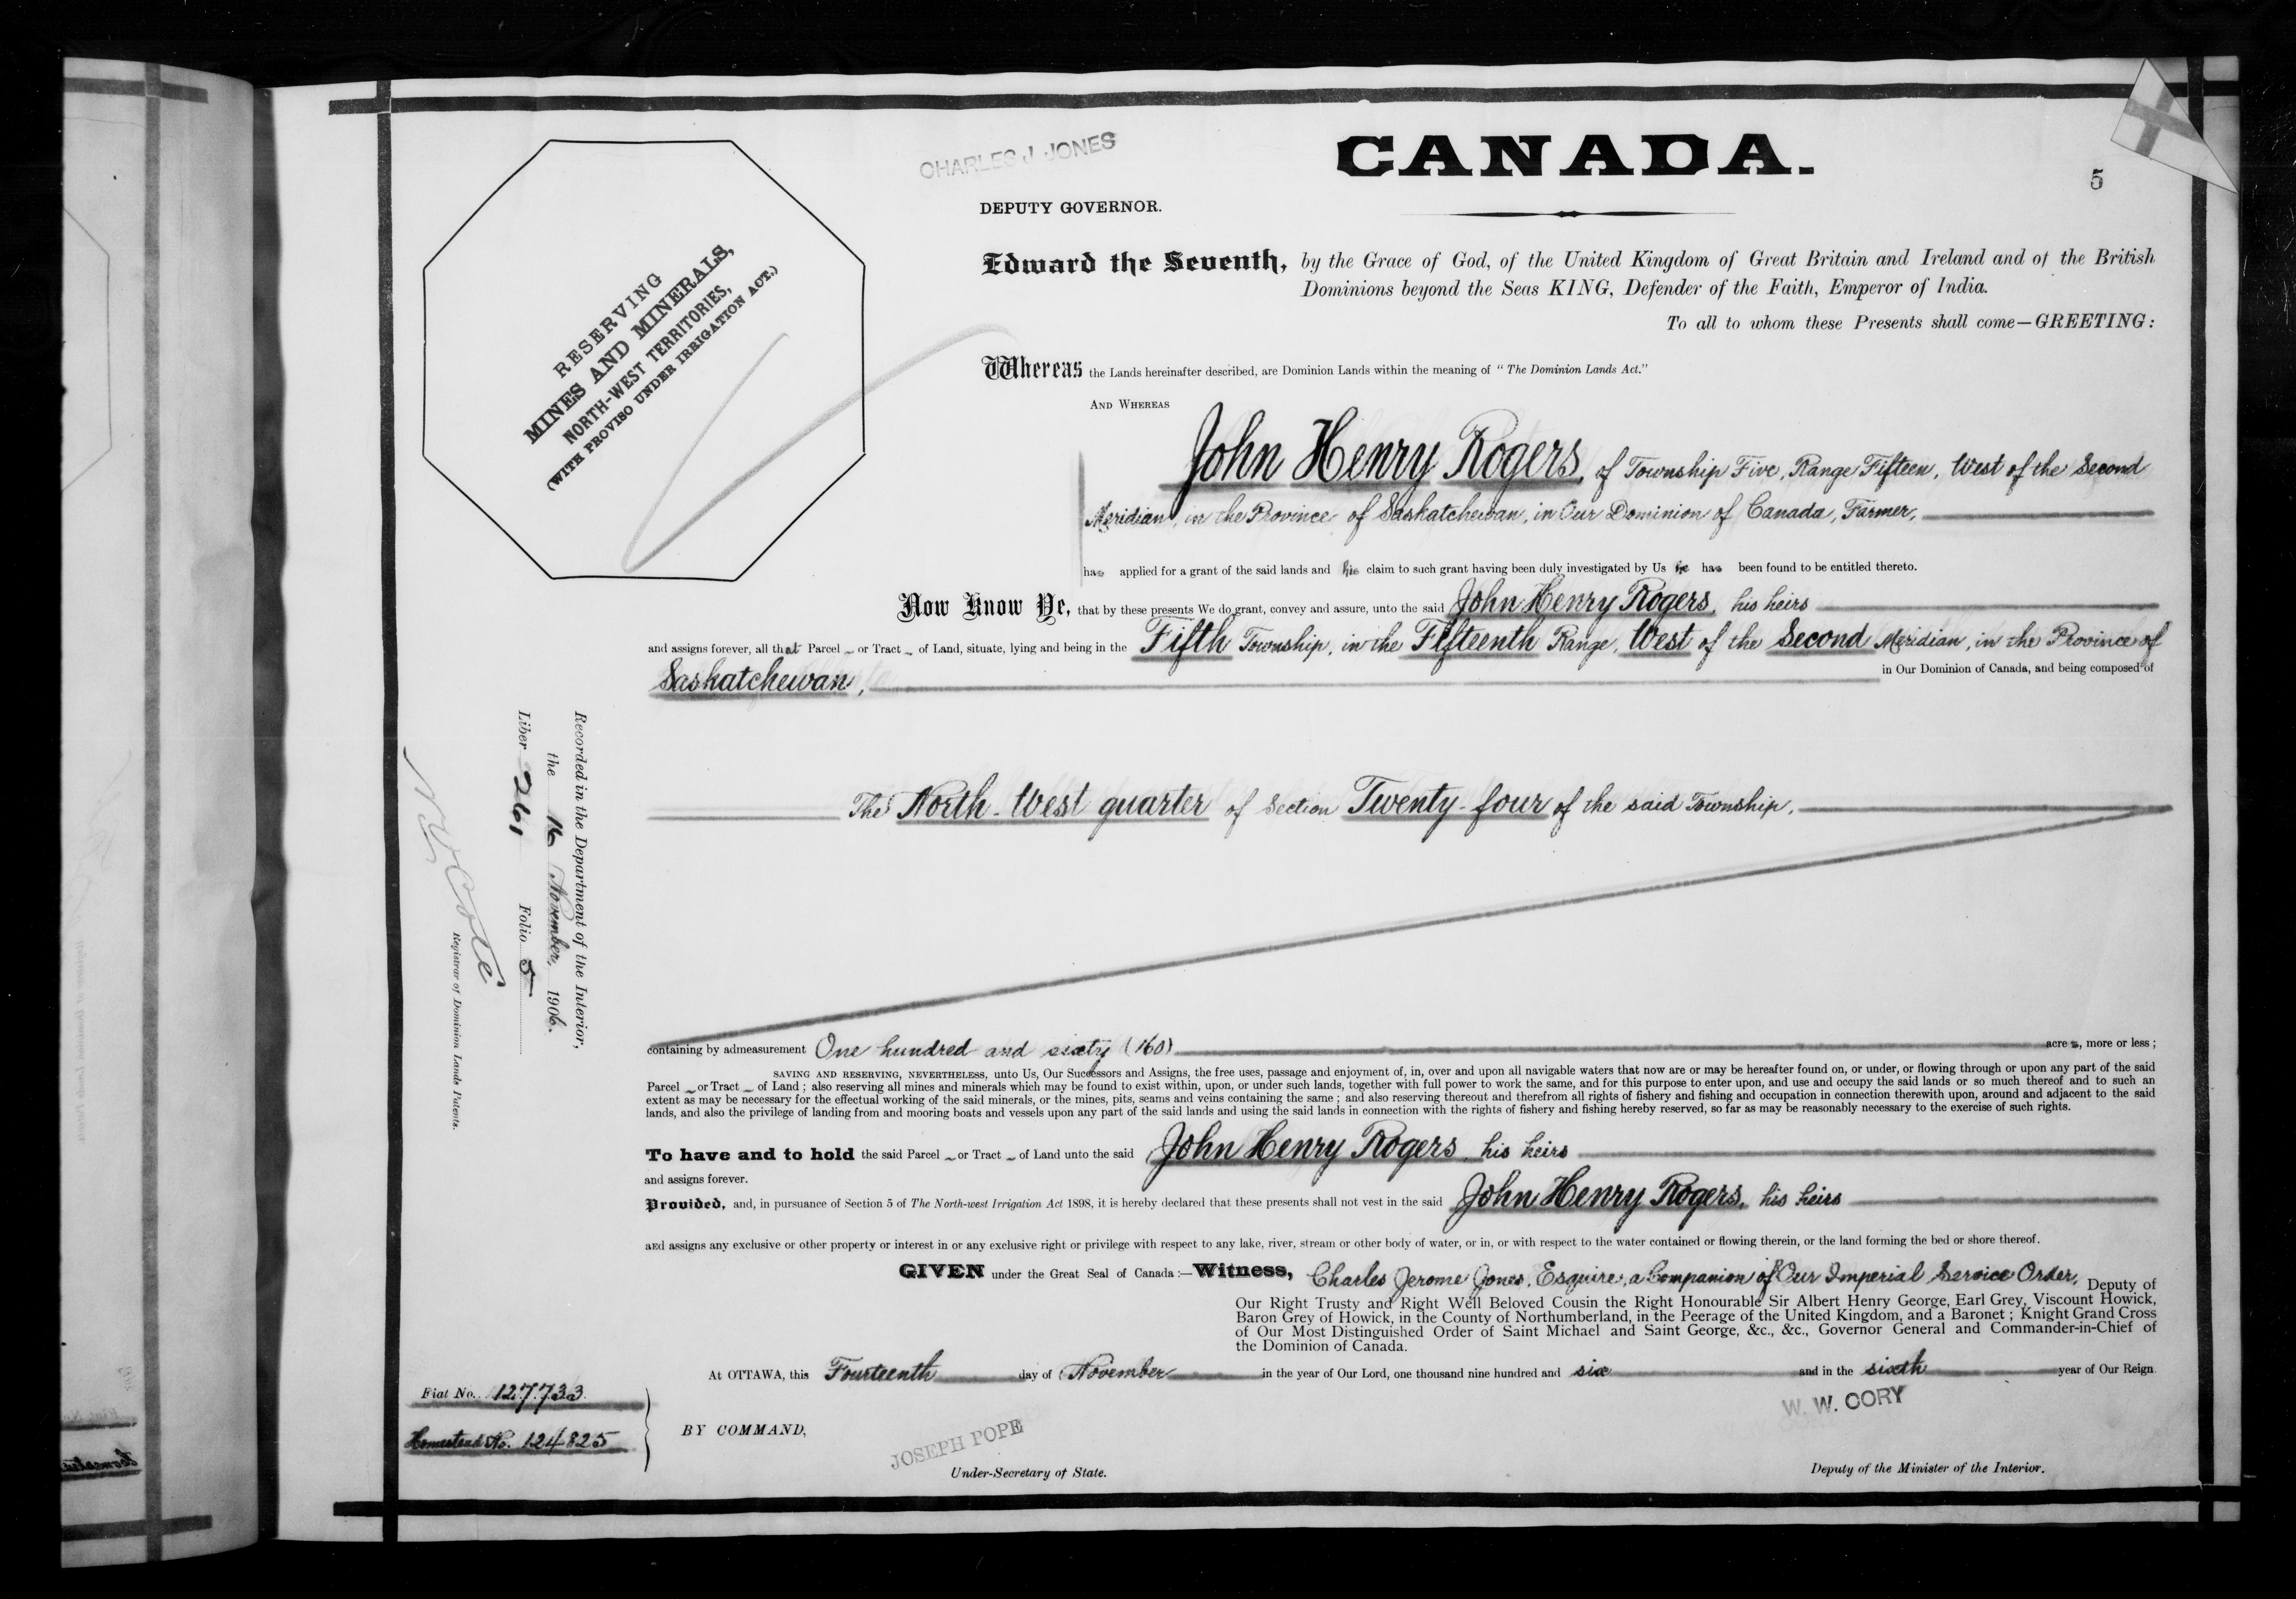 CHARLES J. JONES
CANADA.
5
DEPUTY GOVERNOR.
RESERVING
MINES AND MINERALS,
NORTH-WEST TERRITORIES,
(WITH PROVISO UNDER IRRIGATION ACT.)
Edward the Seventh, by the Grace of God, of the United Kingdom of Great Britain and Ireland and of the British
Dominions beyond the Seas KING, Defender of the Faith, Emperor of India.
To all to whom these Presents shall come—GREETING:
Whereas the Lands hereinafter described, are Dominion Lands within the meaning of "The Dominion Lands Act."
AND WHEREAS
John Henry Rogers, of Township Five, Range Fifteen, West of the Second
Meridian, in the Province of Saskatchewan, in Our Dominion of Canada, Farmer,
has applied for a grant of the said lands and his claim to such grant having been duly investigated by Us he has been found to be entitled thereto.
Now Know Ye, that by these presents We do grant, convey and assure, unto the said John Henry Rogers, his heirs
and assigns forever, all that Parcel or Tract of Land, situate, lying and being in the Fifth Township, in the Fifteenth Range, West of the Second Meridian, in the Province of
Saskatchewan, in Our Dominion of Canada, and being composed of
The North-West quarter of Section Twenty-four of the said Township.
Recorded in the Department of the Interior,
the 16 November, 1906.
Liber 261 Folio 5
N O Coté
Registrar of Dominion Lands Patents.
containing by admeasurement One hundred and sixty (160) acres, more or less;
SAVING AND RESERVING, NEVERTHELESS, unto Us, Our Successors and Assigns, the free uses, passage and enjoyment of, in, over and upon all navigable waters that now are or may be hereafter found on, or under, or flowing through or upon any part of the said
Parcel or Tract of Land; also reserving all mines and minerals which may be found to exist within, upon, or under such lands, together with full power to work the same, and for this purpose to enter upon, and use and occupy the said lands or so much thereof and to such an
extent as may be necessary for the effectual working of the said minerals, or the mines, pits, seams and veins containing the same; and also reserving thereout and therefrom all rights of fishery and fishing and occupation in connection therewith upon, around and adjacent to the said
lands, and also the privilege of landing from and mooring boats and vessels upon any part of the said lands and using the said lands in connection with the rights of fishery and fishing hereby reserved, so far as may be reasonably necessary to the exercise of such rights.
To have and to hold the said Parcel or Tract of Land unto the said John Henry Rogers, his heirs
and assigns forever.
Provided, and, in pursuance of Section 5 of The North-west Irrigation Act 1898, it is hereby declared that these presents shall not vest in the said John Henry Rogers, his heirs
and assigns any exclusive or other property or interest in or any exclusive right or privilege with respect to any lake, river, stream or other body of water, or in, or with respect to the water contained or flowing therein, or the land forming the bed or shore thereof.
GIVEN under the Great Seal of Canada:—Witness, Charles Jerome Jones, Esquire, a Companion of Our Imperial Service Order, Deputy of
Our Right Trusty and Right Well Beloved Cousin the Right Honourable Sir Albert Henry George, Earl Grey, Viscount Howick,
Baron Grey of Howick, in the County of Northumberland, in the Peerage of the United Kingdom, and a Baronet; Knight Grand Cross
of Our Most Distinguished Order of Saint Michael and Saint George, &c., &c., Governor General and Commander-in-Chief of
the Dominion of Canada.
At OTTAWA, this Fourteenth day of November in the year of Our Lord, one thousand nine hundred and six and in the sixth year of Our Reign
Fiat No. 127733.
Homestead No. 124825
BY COMMAND,
JOSEPH POPE
Under-Secretary of State.
W. W. CORY
Deputy of the Minister of the Interior.